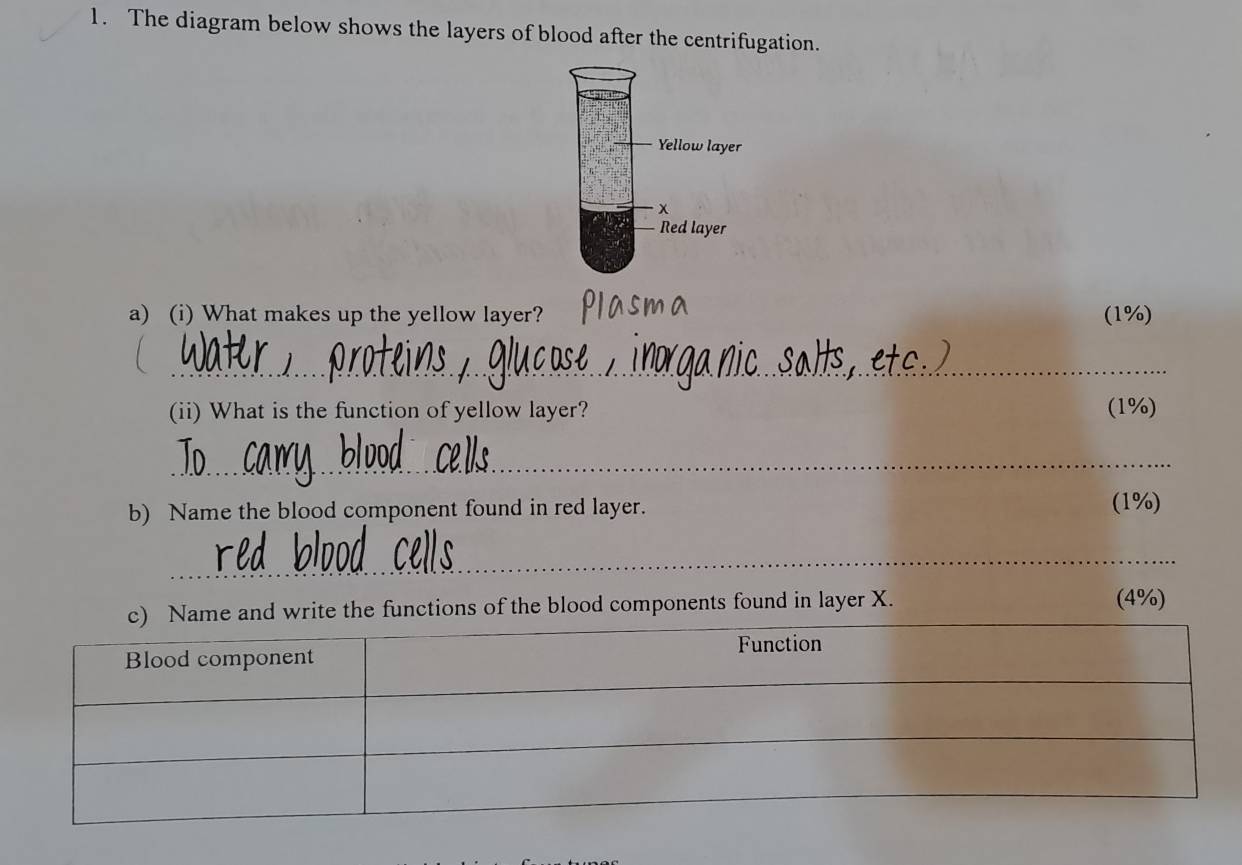 1. The diagram below shows the layers of blood after the centrifugation.
Yellow layer
X
Red layer
a) (i) What makes up the yellow layer? Plasma (1%)
( Water, proteins, glucose, inorganic salts, etc.)
(ii) What is the function of yellow layer? (1%)
To carry blood cells
b) Name the blood component found in red layer. (1%)
red blood cells
c) Name and write the functions of the blood components found in layer X. (4%)
Blood component Function